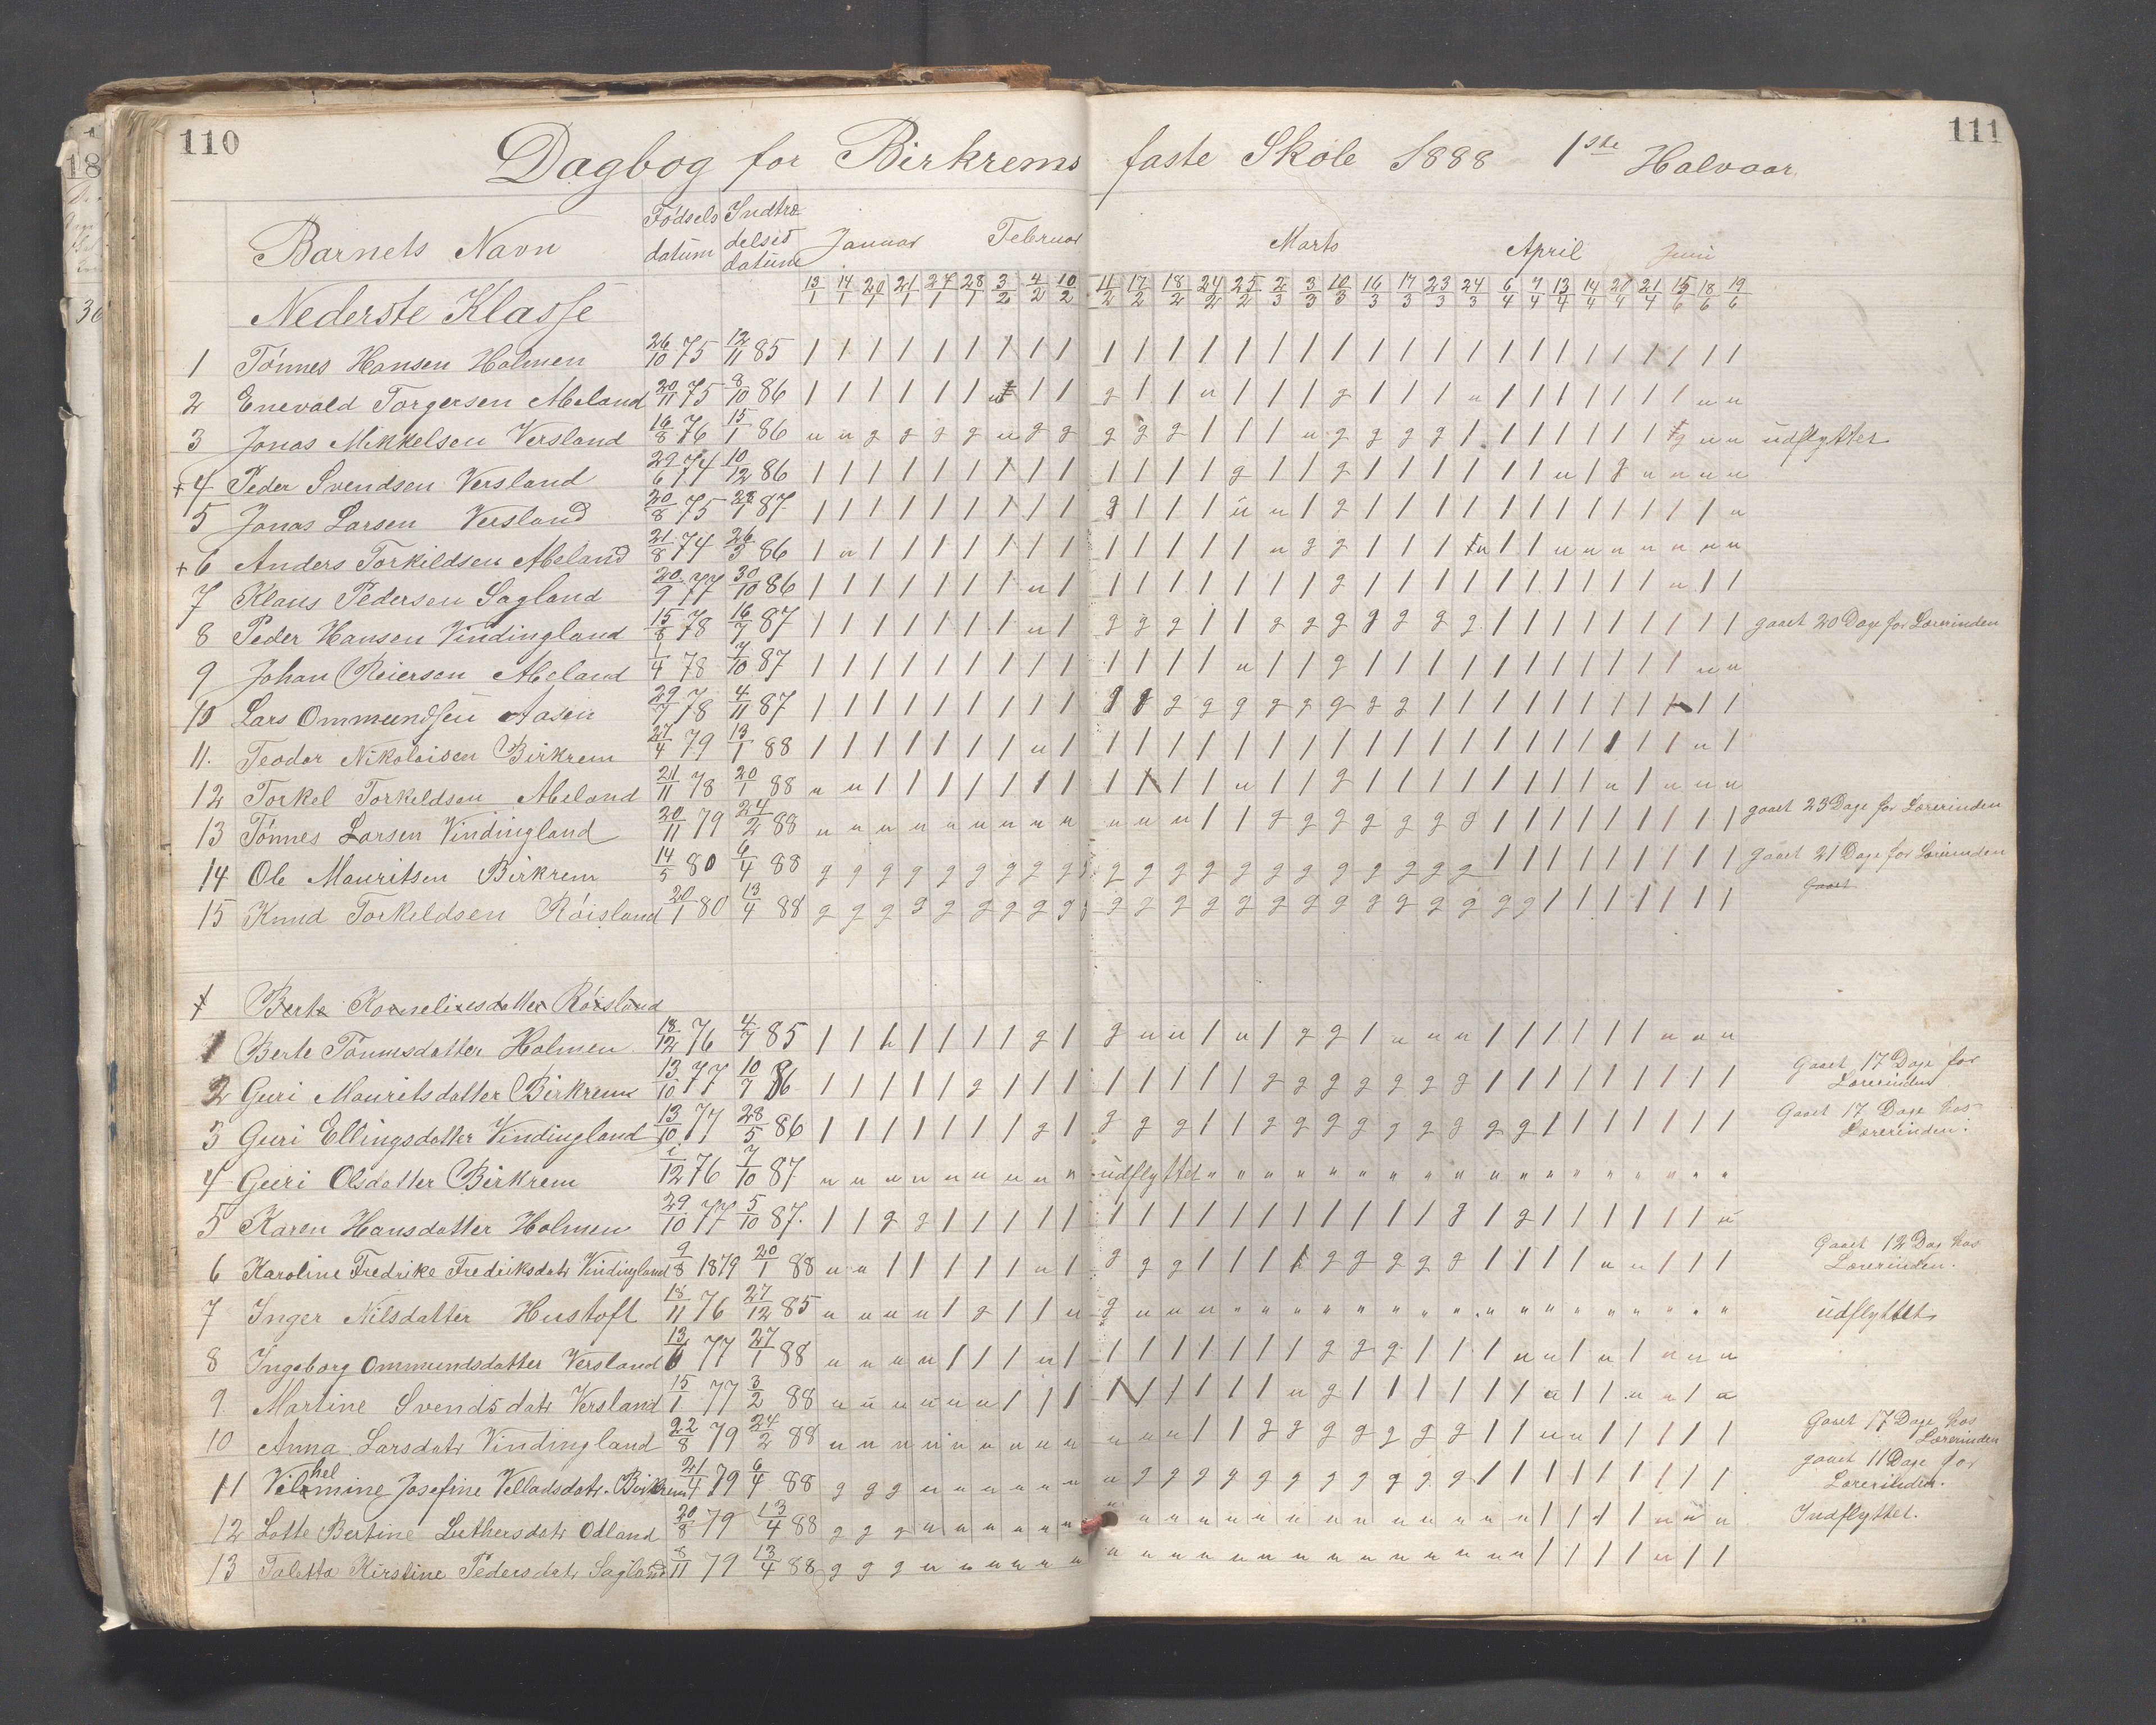 110
111
Dagbog for Birkrems faste Skole 1888 1ste Halvaar
Barnets Navn Fødsels datum Indtrædelses datum Januar Februar Marts April Juni
13/1 14/1 20/1 21/1 27/1 28/1 3/2 4/2 10/2 11/2 17/2 18/2 24/2 25/2 2/3 3/3 10/3 16/3 17/3 23/3 24/3 6/4 7/4 13/4 14/4 20/4 21/4 15/6 18/6 19/6
Nederste Klasse
1 Tønnes Hansen Holmen 26/10 75 12/11 85
2 Enevald Torgersen Meland 20/11 75 8/10 86
3 Jonas Mikkelsen Versland 16/8 76 15/1 86 udflyttet
+4 Peder Svendsen Versland 29/6 74 10/12 86
5 Jonas Larsen Versland 20/8 75 28/1 87
+6 Anders Torkildsen Meland 21/8 74 26/3 86
7 Klaus Pedersen Sagland 20/9 77 30/10 86
8 Peder Hansen Vindingland 15/8 78 16/7 87 gaaet 20 Dage for Lærerinden
9 Johan Reiersen Meland 1/4 78 7/10 87
10 Lars Ommundsen Aasen 29/7 78 4/11 87
11. Teodor Nikolaisen Birkrem 27/4 79 13/1 88
12 Torkel Torkeldsen Meland 21/11 78 20/1 88
13 Tønnes Larsen Vindingland 20/11 79 24/2 88 gaaet 23 Dage for Lærerinden
14 Ole Mauritsen Birkrem 14/5 80 6/4 88 gaaet 21 Dage for Lærerinden
Gaaet
15 Knud Torkeldsen Røisland 20/1 80 13/4 88
Berte Korneliusdatter Røisland
1 Berte Tønnesdatter Holmen 18/12 76 4/7 85
2 Guri Mauritsdatter Birkrem 13/10 77 10/7 86 Gaaet 17 Dage for Lærerinden
3 Guri Ellingsdatter Vindingland 13/10 77 28/5 86 Gaaet 17 Dage hos Lærerinden.
4 Guri Olsdatter Birkrem 1/12 76 7/10 87 udflyttet
5 Karen Hansdatter Holmen 29/10 77 5/10 87.
6 Karoline Fredrike Fredriksdatr Vindingland 9/8 1879 20/1 88 Gaaet 12 Dag hos Lærerinden.
7 Inger Nilsdatter Hustoft 18/11 76 27/12 85 udflyttet
8 Ingeborg Ommundsdatter Versland 13/6 77 27/1 88
9. Martine Svendsdatr Versland 15/1 77 3/2 88
10 Anna Larsdatr Vindingland 22/8 79 24/2 88 Gaaet 17 Dage hos Lærerinden
11 Vilhelmine Josefine Velladsdatr. Birkrem 21/4 79 6/4 88 gaaet 11 Dage for Lærerinden.
12 Lotte Bertine Luthersdatr Odland 20/8 79 13/4 88 Indflyttet.
13 Taletta Kirstine Pedersdatr Sagland 8/11 79 13/4 88